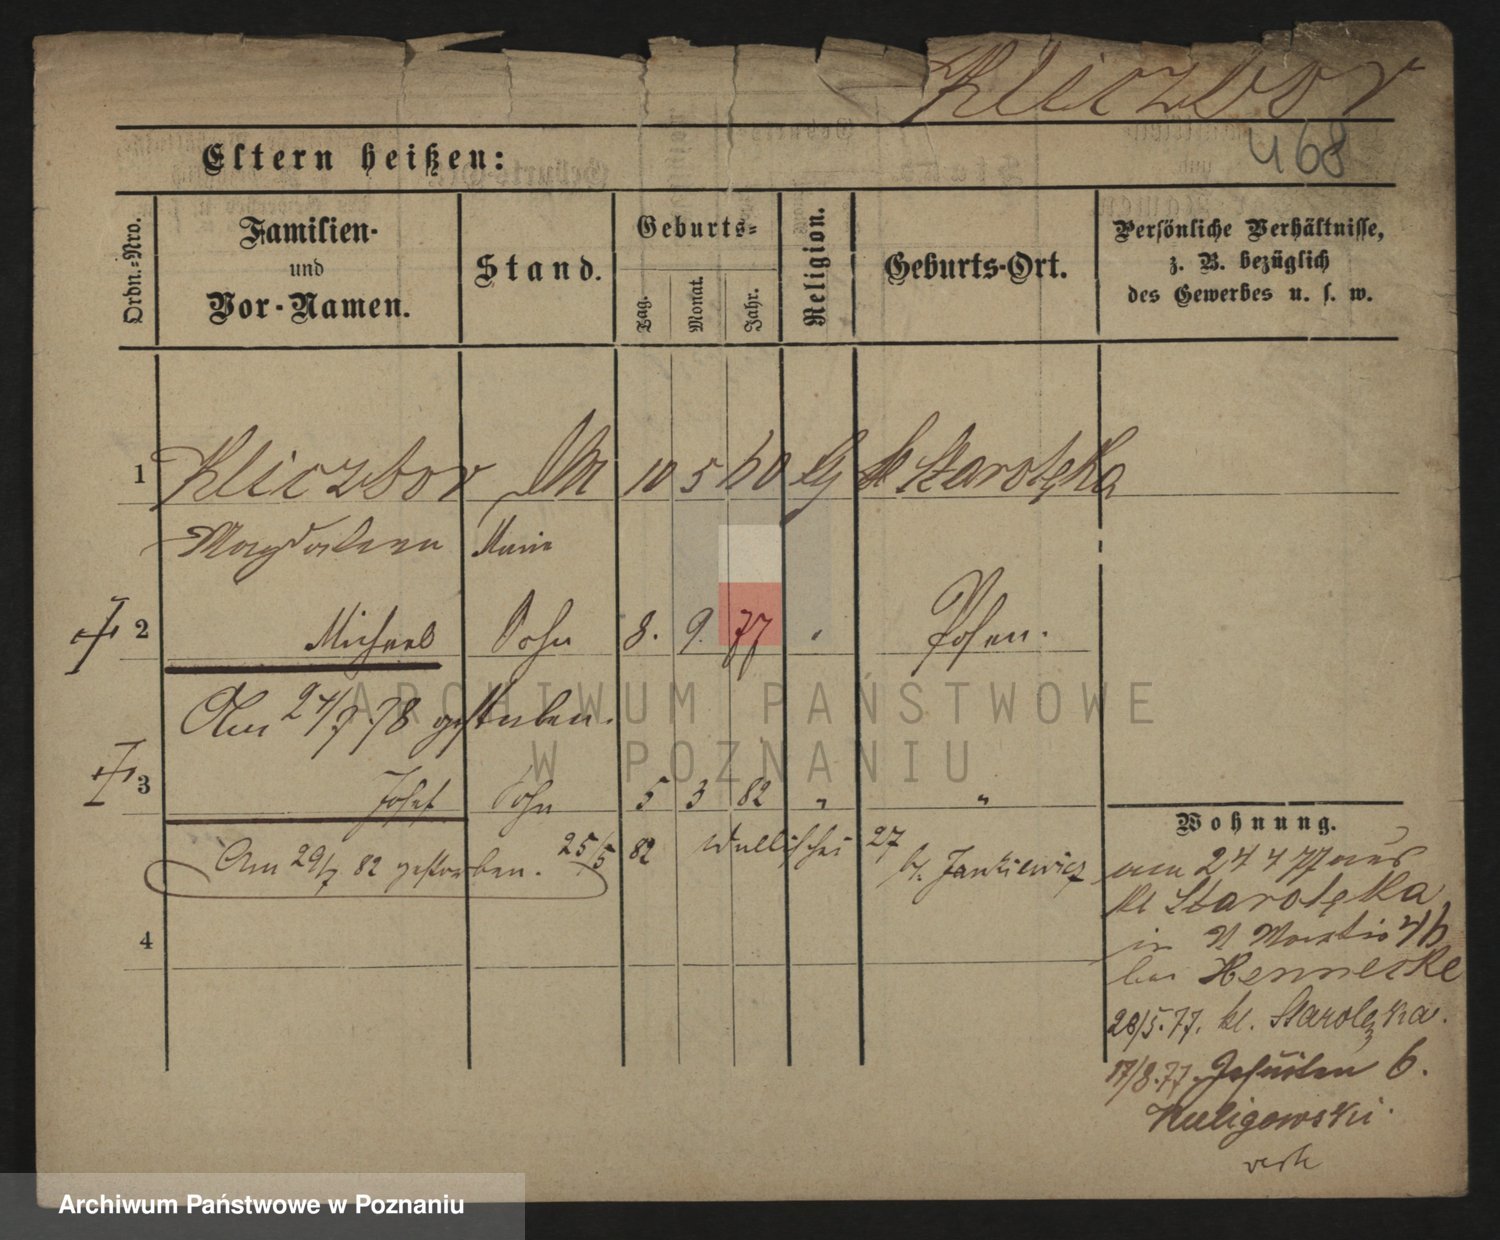 Kliczbor
468
Eltern heißen:
Ordn.-Nro.
Familien-
und
Vor-Namen.
Stand.
Geburts-
Tag.
Monat.
Jahr.
Religion.
Geburts-Ort.
Persönliche Verhältnisse,
z. B. bezüglich
des Gewerbes u. s. w.
1 Kliczbor 10 5 Starolęka
Magdalena
2 Michael Sohn 8. 9. 77 " Posen.
Am 24/9.78 gestorben.
3 Josef Sohn 5 3 82 " "
Am 29/7 82 gestorben. 25/5 82 Wallischei 27
b/. Jankiewicz
4
Wohnung.
am 24 4 77 aus
kl Starolęka
in St Martin
bei Hennecke
28/5.77. kl. Starolęka.
17/8.77. Jesuiten 6.
Kuligowski.
ARCHIWUM PAŃSTWOWE
W POZNANIU
Archiwum Państwowe w Poznaniu